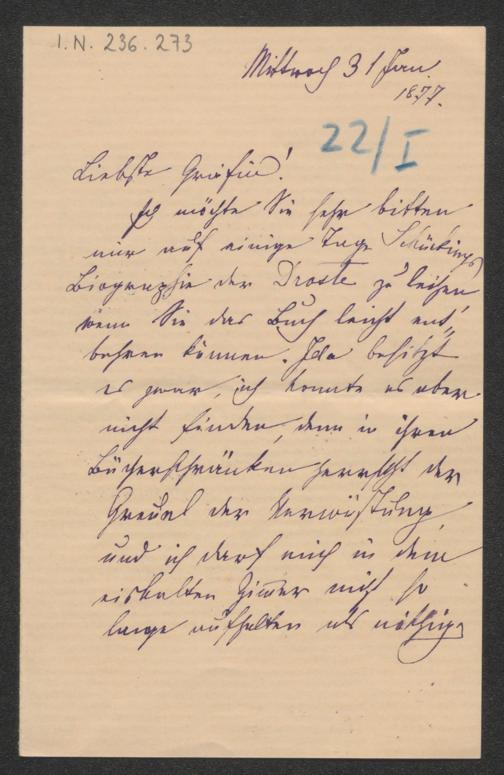 I.N. 236.273
Mittwoch 31 Jan.
1877.
22/I
Liebste Gräfin!
Ich möchte Sie sehr bitten
mir auf einige Tage Schückings
Biographie der Droste zu leihen
wenn Sie das Buch leicht ent„
behren können. Ida besitzt
es zwar, ich konnte es aber
nicht finden, denn in ihren
Bücherschränken herrscht der
Greuel der Verwüstung
und ich darf mich in dem
eiskalten Zimer nicht so
lange aufhalten als nöthig